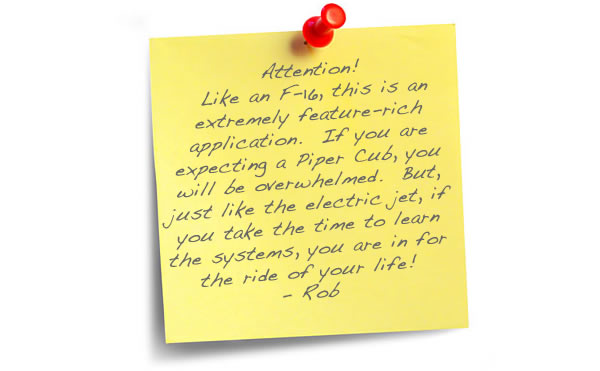 Attention!
Like an F-16, this is an
extremely feature-rich
application.  If you are
expecting a Piper Cub, you
will be overwhelmed.  But,
just like the electric jet, if
you take the time to learn
the systems, you are in for
the ride of your life!
- Rob